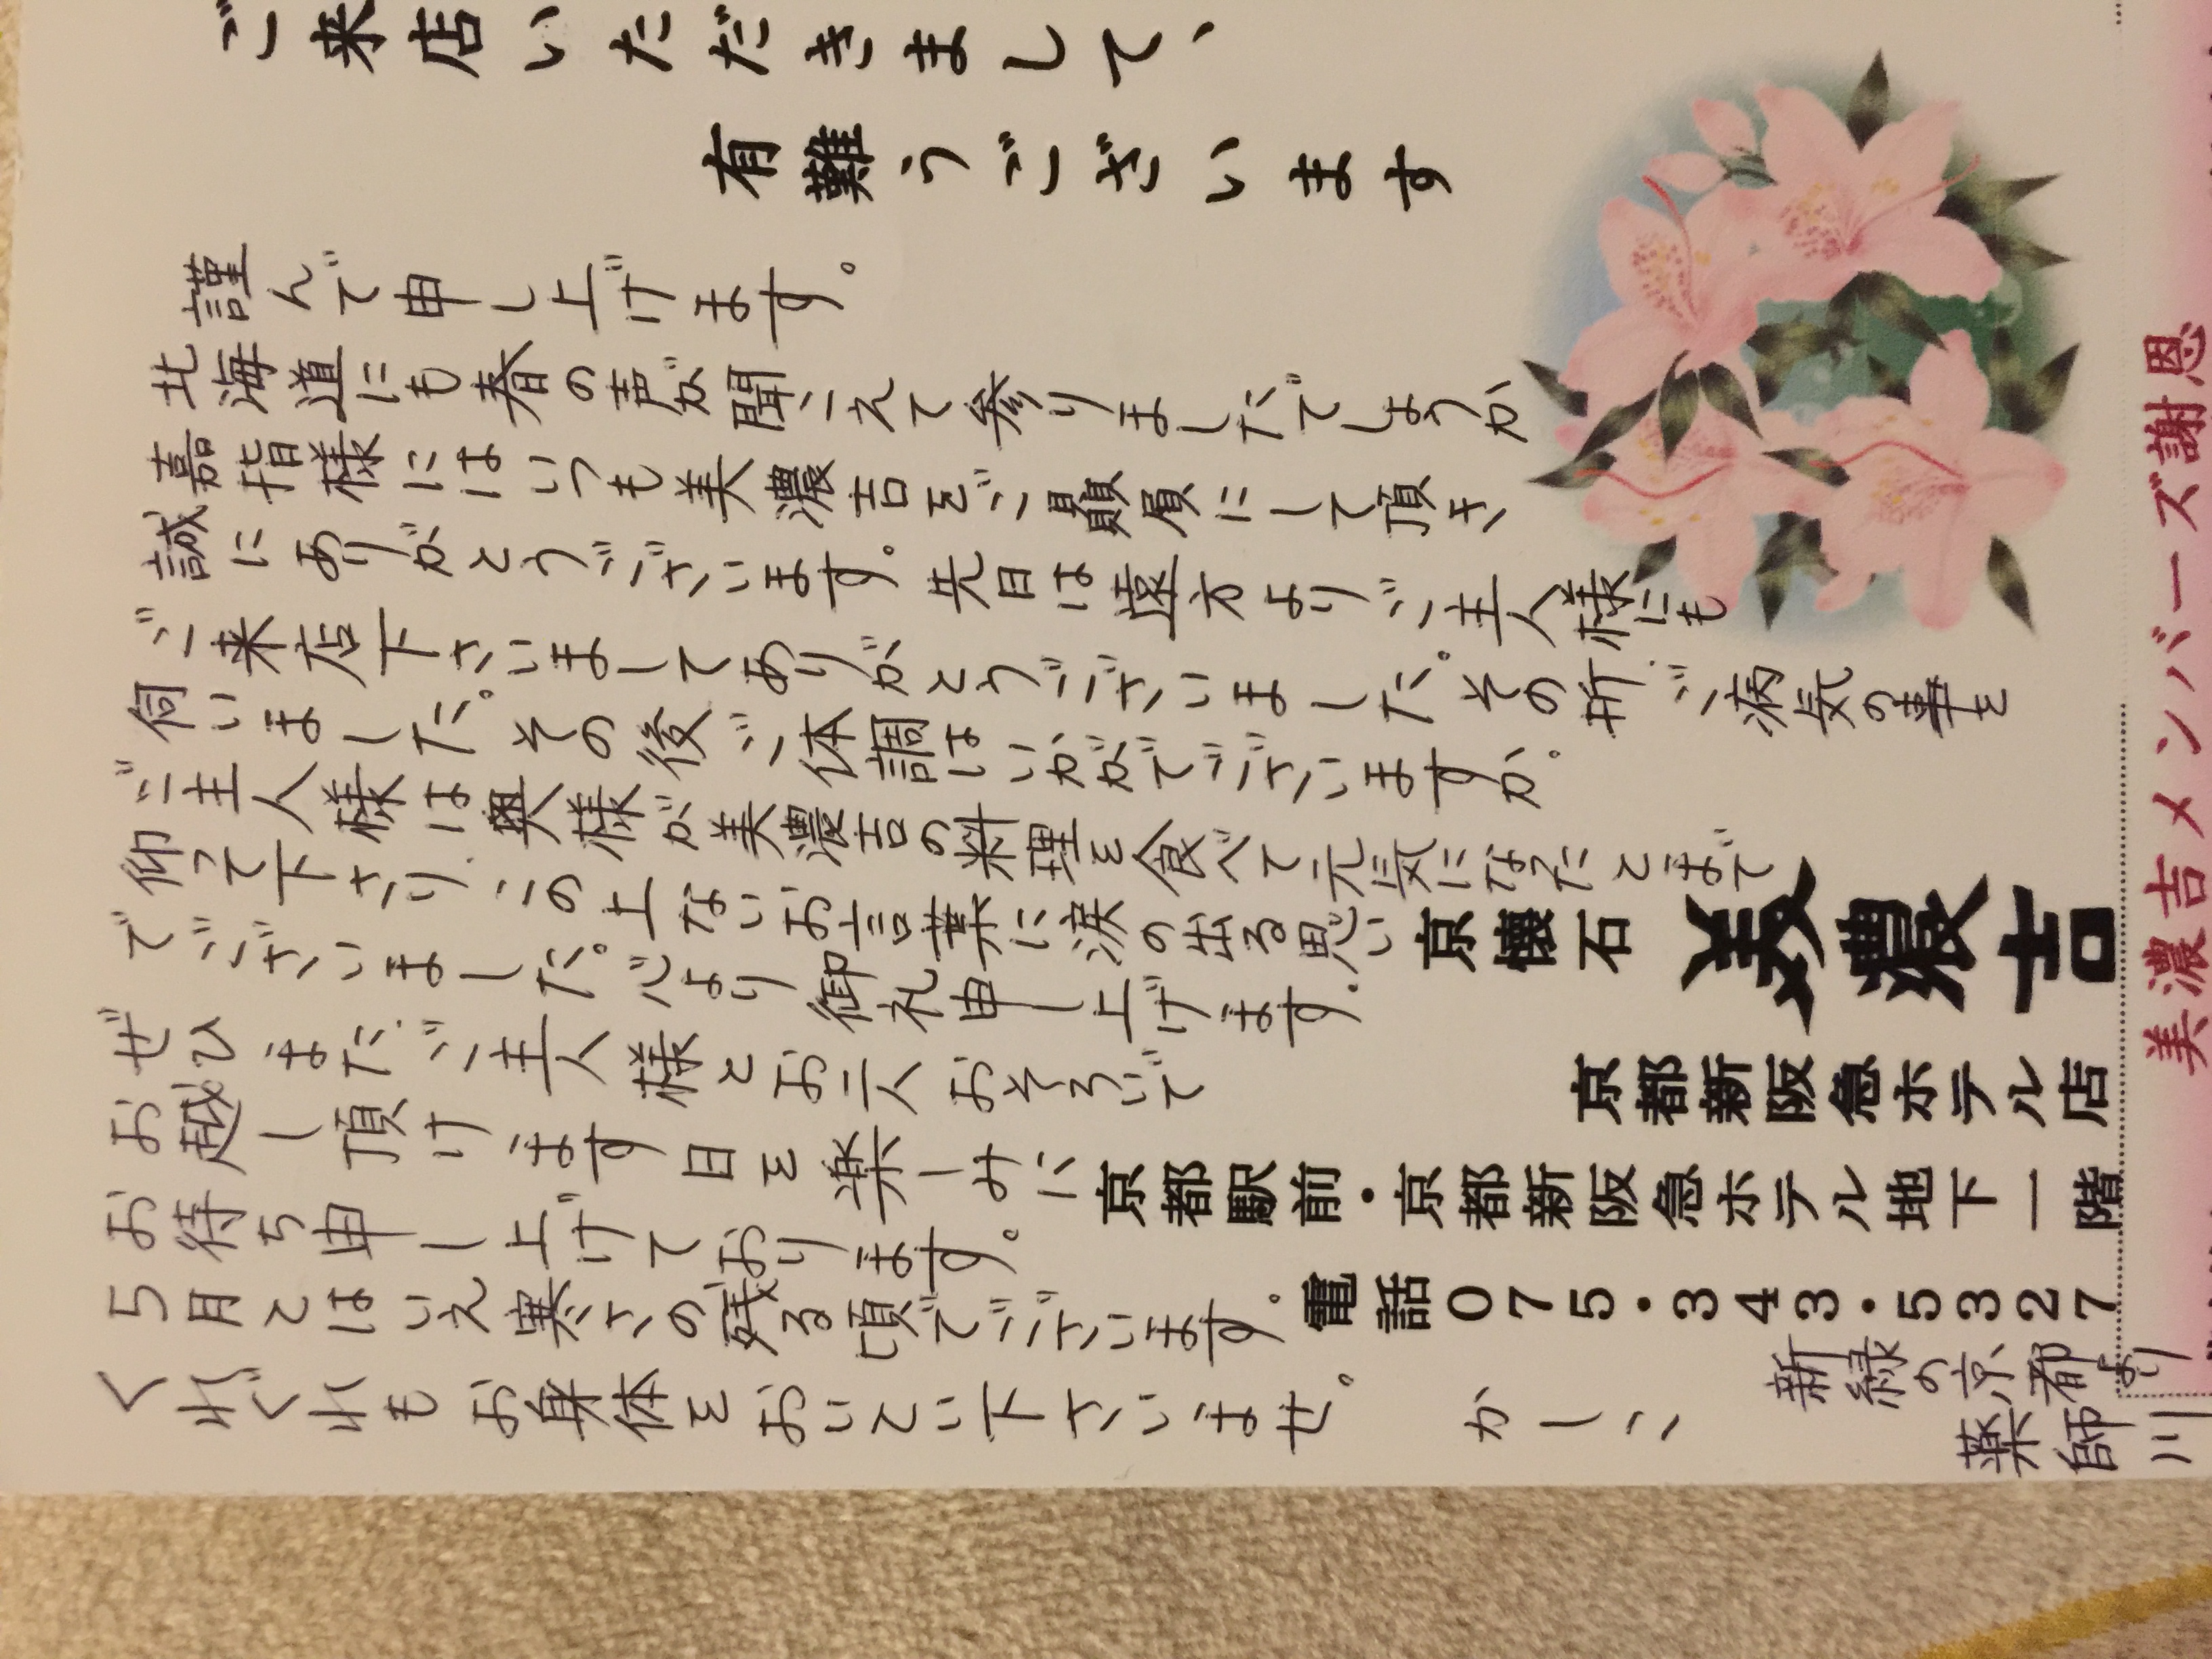 ご来店いただきまして、
有難うございます
謹んで申し上げます。
北海道にも春の声が聞こえて参りましたでしょうか
嘉指様にはいつも美濃吉をご贔屓にして頂き
誠にありがとうございます。先日は遠方よりご主人様にも
ご来店下さいましてありがとうございました。その折、ご病気の事を
伺いました。その後ご体調はいかがでございますか。
ご主人様は奥様が美濃吉の料理を食べて元気になったとまで
仰って下さり、この上ないお言葉に涙の出る思い
でございました。心より御礼申し上げます。
ぜひまた、ご主人様とお二人おそろいで
お越し頂けます日を楽しみに
お待ち申し上げております。
5月とはいえ寒さの残る頃でございます。
くれぐれもお身体をおいとい下さいませ。 かしこ
新緑の京都より
薬師川
京懐石 美濃吉
京都新阪急ホテル店
京都駅前・京都新阪急ホテル地下一階
電話075・343・5327
美濃吉メンバーズ謝恩